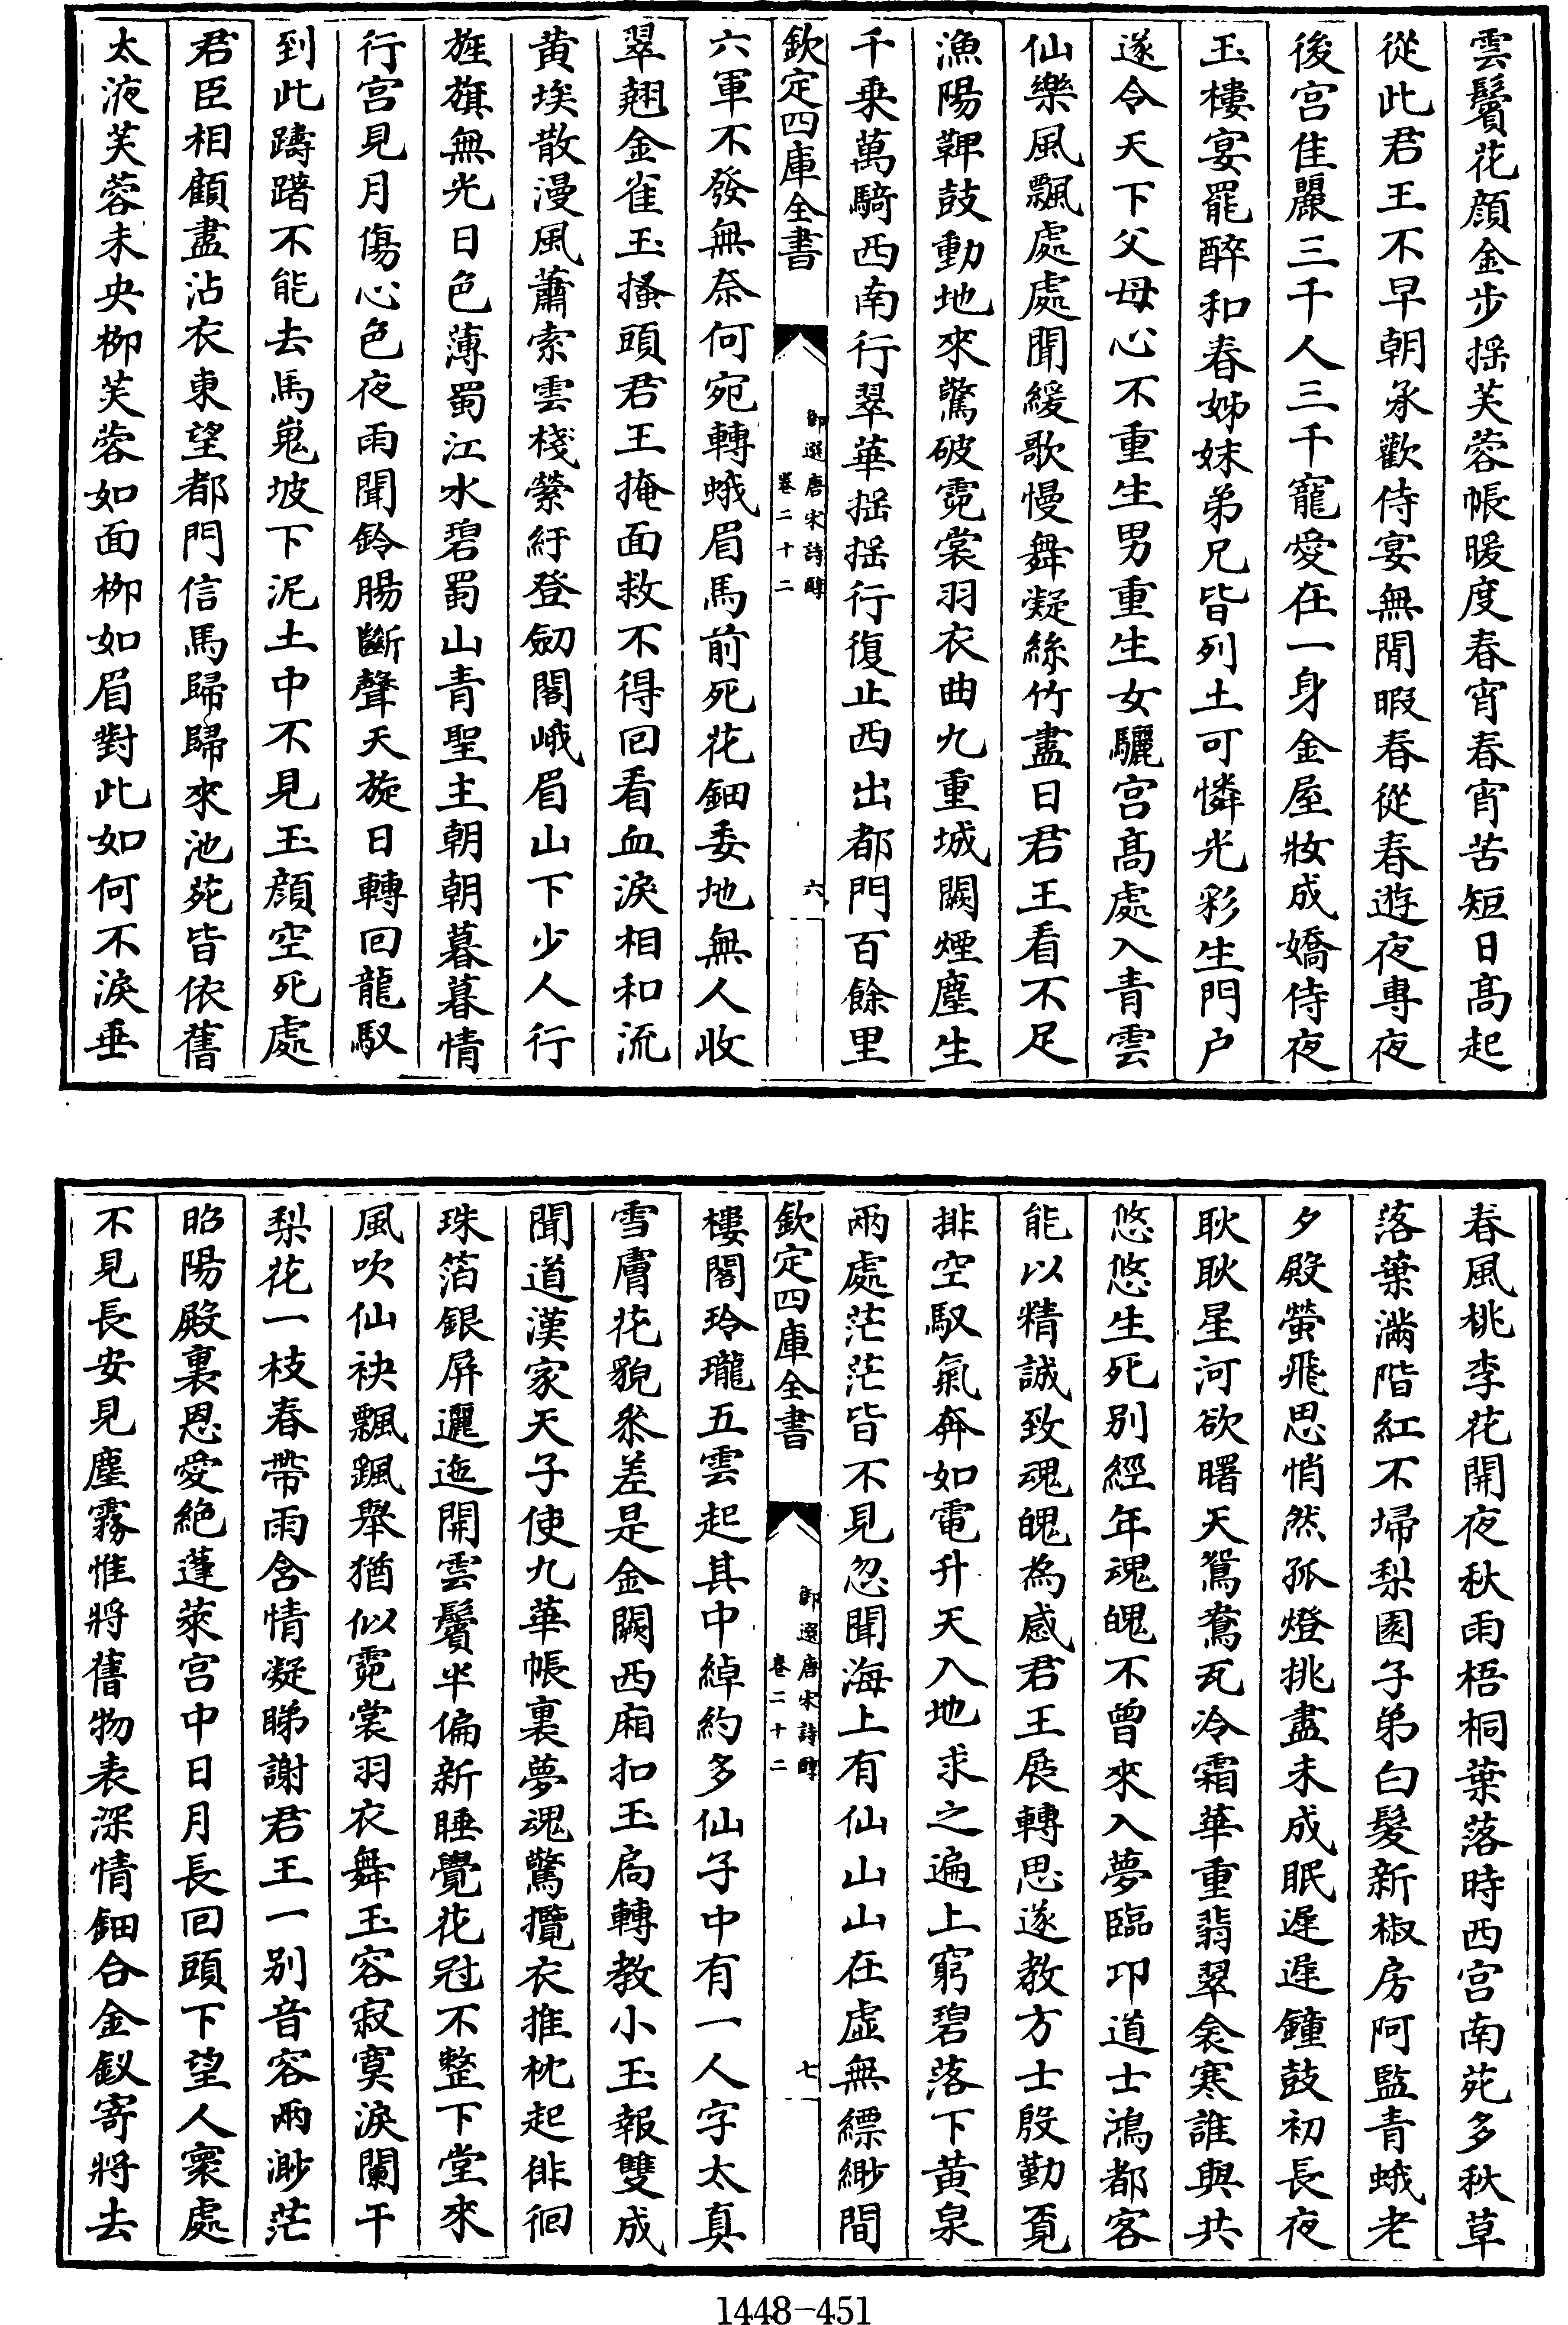 雲鬢花顔金步揺芙蓉帳暖度春宵春宵苦短日髙起
從此君王不早朝承歡侍宴無閒暇春從春遊夜専夜
後宫佳麗三千人三千寵愛在一身金屋妝成嬌侍夜
玉樓宴罷醉和春姊妹弟兄皆列土可憐光彩生門户
遂令天下父母心不重生男重生女驪宫髙處入青雲
仙樂風飄處處聞緩歌慢舞凝絲竹盡日君王看不足
漁陽鞞鼓動地來驚破霓裳羽衣曲九重城闕煙塵生
千乗萬騎西南行翠華揺揺行復止西出都門百餘里
欽定四庫全書
御選唐宋詩醇
卷二十二
六
六軍不發無奈何宛轉蛾眉馬前死花鈿委地無人收
翠翹金雀玉搔頭君王掩面救不得回看血淚相和流
黄埃散漫風蕭索雲棧縈紆登劒閣峨眉山下少人行
旌旗無光日色薄蜀江水碧蜀山青聖主朝朝暮暮情
行宫見月傷心色夜雨聞鈴腸斷聲天旋日轉回龍馭
到此躊躇不能去馬嵬坡下泥土中不見玉顔空死處
君臣相顧盡沾衣東望都門信馬歸歸來池苑皆依舊
太液芙蓉未央栁芙蓉如面栁如眉對此如何不淚垂
春風桃李花開夜秋雨梧桐葉落時西宫南苑多秋草
落葉滿階紅不埽梨園子弟白髮新椒房阿監青蛾老
夕殿螢飛思悄然孤燈挑盡未成眠遲遲鐘鼓初長夜
耿耿星河欲曙天鴛鴦瓦冷霜華重翡翠衾寒誰與共
悠悠生死别經年魂魄不曾來入夢臨卭道士鴻都客
能以精誠致魂魄為感君王展轉思遂教方士殷勤覔
排空馭氣奔如電升天入地求之遍上窮碧落下黄泉
兩處茫茫皆不見忽聞海上有仙山山在虚無縹緲間
欽定四庫全書
御選唐宋詩醇
卷二十二
七
樓閣玲瓏五雲起其中綽約多仙子中有一人字太真
雪膚花貌叅差是金闕西廂扣玉扃轉教小玉報雙成
聞道漢家天子使九華帳裏夢魂驚攬衣推枕起徘徊
珠箔銀屏邐迤開雲鬢半偏新睡覺花冠不整下堂來
風吹仙袂飄颻舉猶似霓裳羽衣舞玉容寂寞淚闌干
梨花一枝春帶雨含情凝睇謝君王一别音容兩渺茫
昭陽殿裏恩愛絶蓬萊宫中日月長回頭下望人寰處
不見長安見塵霧惟將舊物表深情鈿合金釵寄將去
1448-451